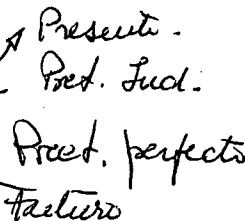 Presente.
Pret. Ind.
Pret. perfecto
Futuro